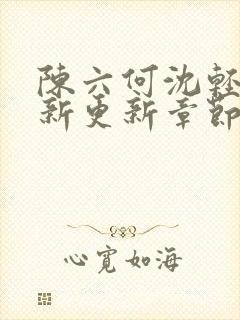 陳六何沈輕
新更新章節
心寬如海